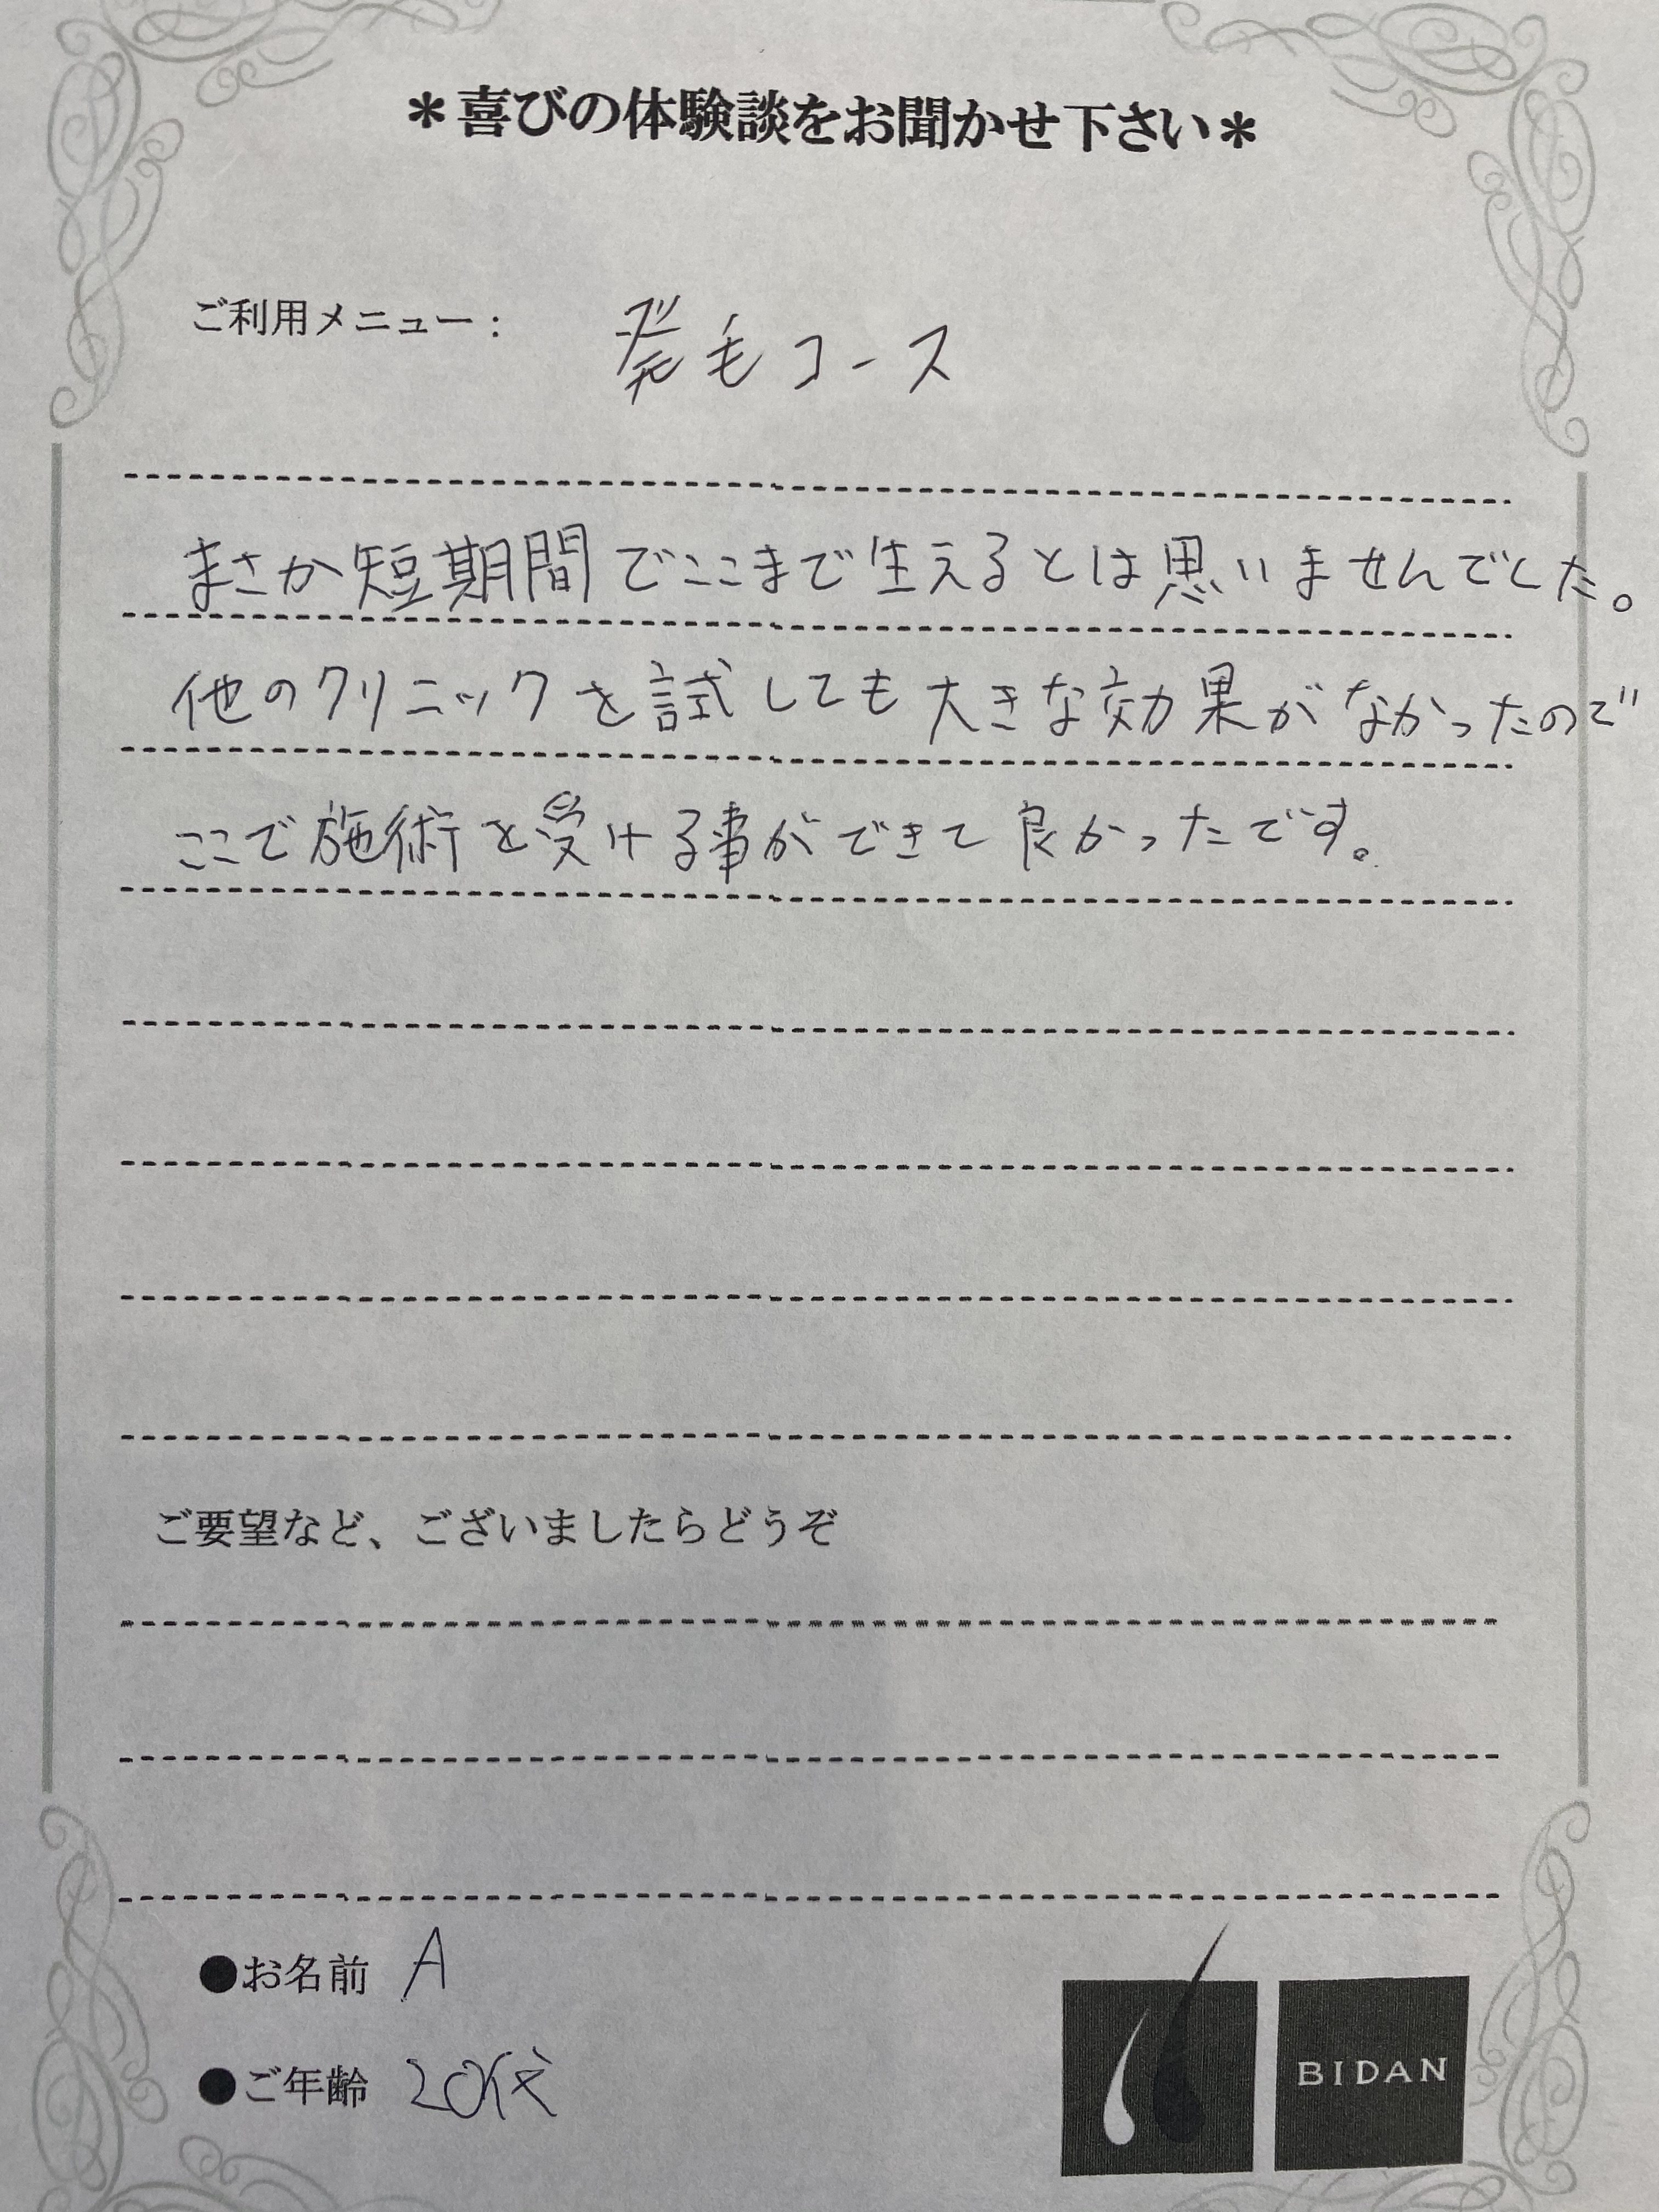 ＊喜びの体験談をお聞かせ下さい＊
ご利用メニュー： 発毛コース
まさか短期間でここまで生えるとは思いませんでした。
他のクリニックを試しても大きな効果がなかったので
ここで施術を受ける事ができて良かったです。
ご要望など、ございましたらどうぞ
●お名前 A
●ご年齢 20代
BIDAN